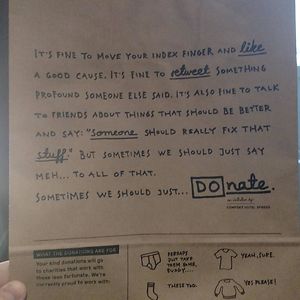 IT'S FINE TO MOVE YOUR INDEX FINGER AND like
A GOOD CAUSE. IT'S FINE TO retweet SOMETHING
PROFOUND SOMEONE ELSE SAID. IT'S ALSO FINE TO TALK
TO FRIENDS ABOUT THINGS THAT SHOULD BE BETTER
AND SAY: "Someone SHOULD REALLY FIX THAT
stuff." BUT SOMETIMES WE SHOULD JUST SAY
MEH... TO ALL OF THAT.
SOMETIMES WE SHOULD JUST... DOnate.
COMFORT HOTEL XPRESS
WHAT THE DONATIONS ARE FOR
Your kind donations will go
to charities that work with
those less fortunate. We're
very proud to work with:
PERHAPS
BUT
THEM SOME,
YEAH, SURE.
THESE TOO.
YES PLEASE!